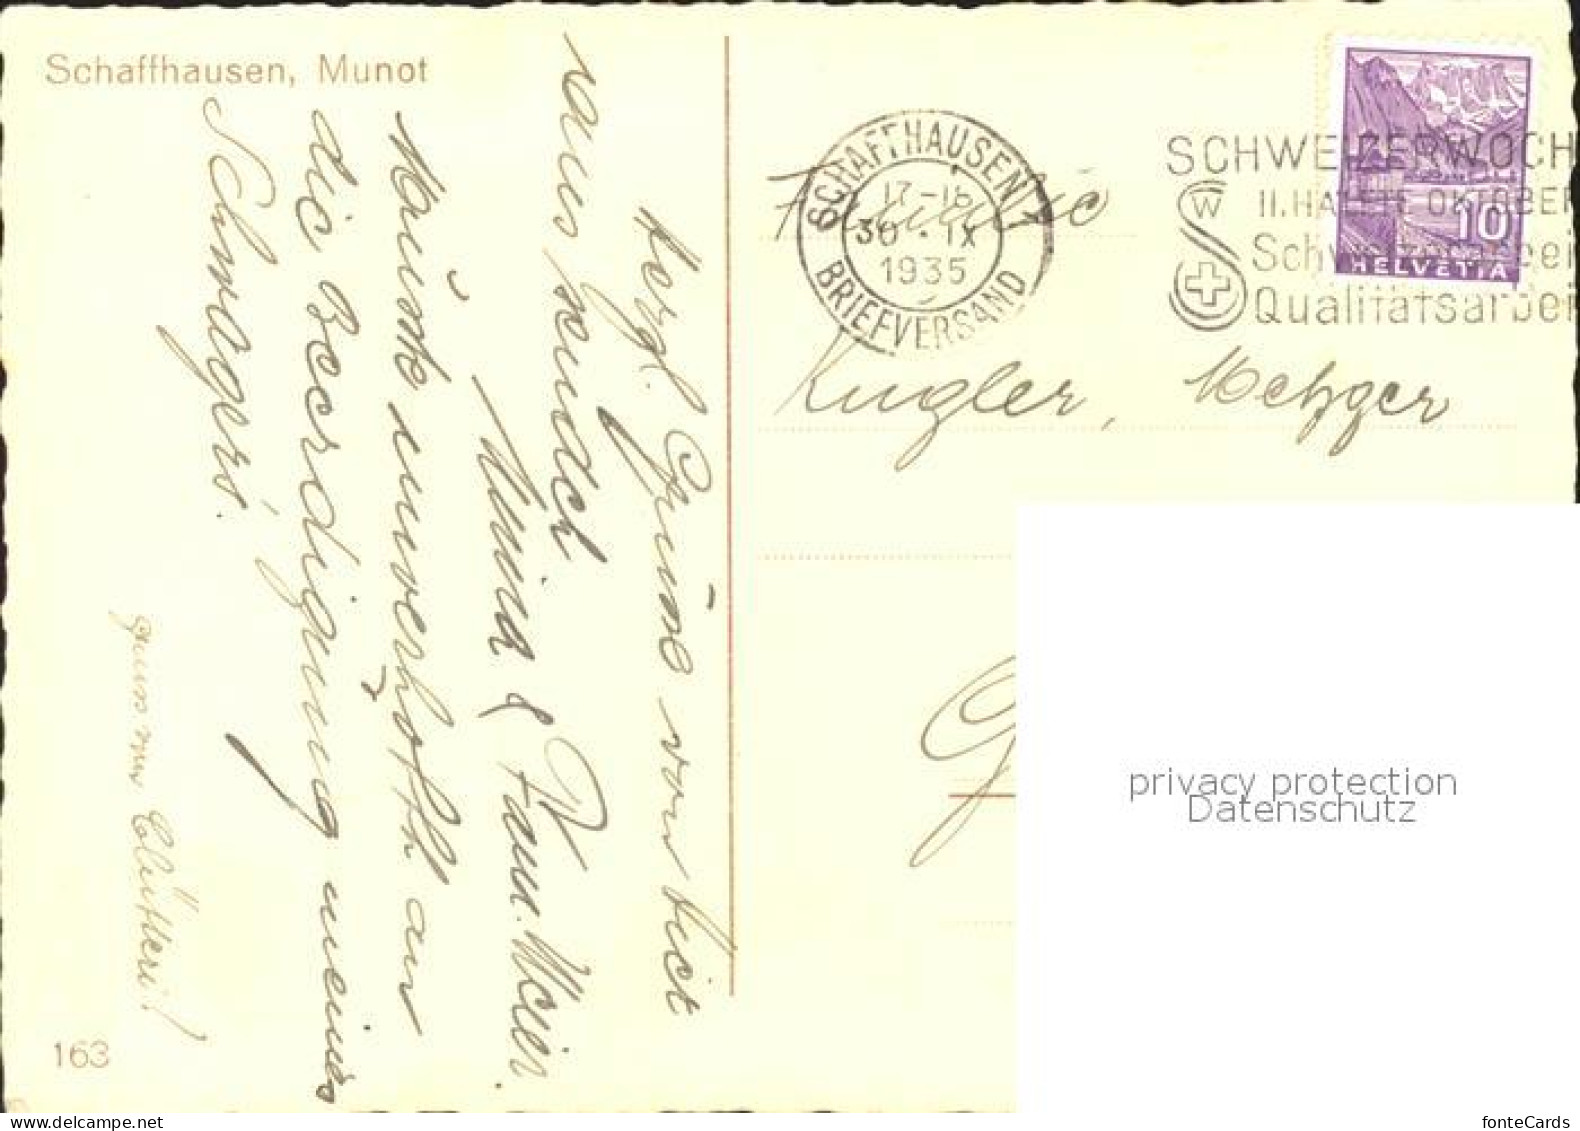 Schaffhausen, Munot
Herzl. Grüße von hier
aus sendet
Anina & Fam. Meier.
Mußte unverhofft an
die Beerdigung meines
Schwagers.
163
SCHAFFHAUSEN 1
17-18
30.IX
1935
BRIEFVERSAND
SCHWEIZERWOCH
II.HÄLFTE OKTOBER
Schweizerarbei
Qualitätsarbei
W
10
HELVETIA
Familie
Kugler, Metzger
G
privacy protection
Datenschutz
fonteCards